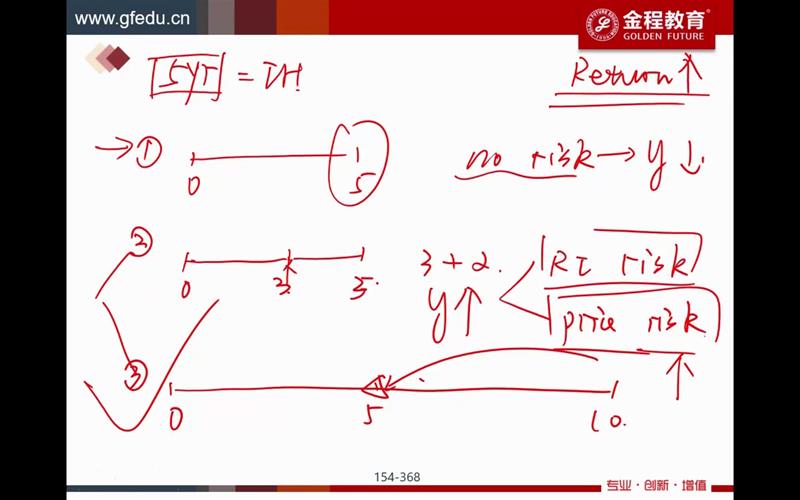 www.gfedu.cn
金程教育
GOLDEN FUTURE
5yr = IH
Return ↑
→ ① 0 5
no risk → y ↓
② 0 3 5
3 + 2
y ↑
RI risk
price risk ↑
③ 0 5 10
154-368
专业·创新·增值